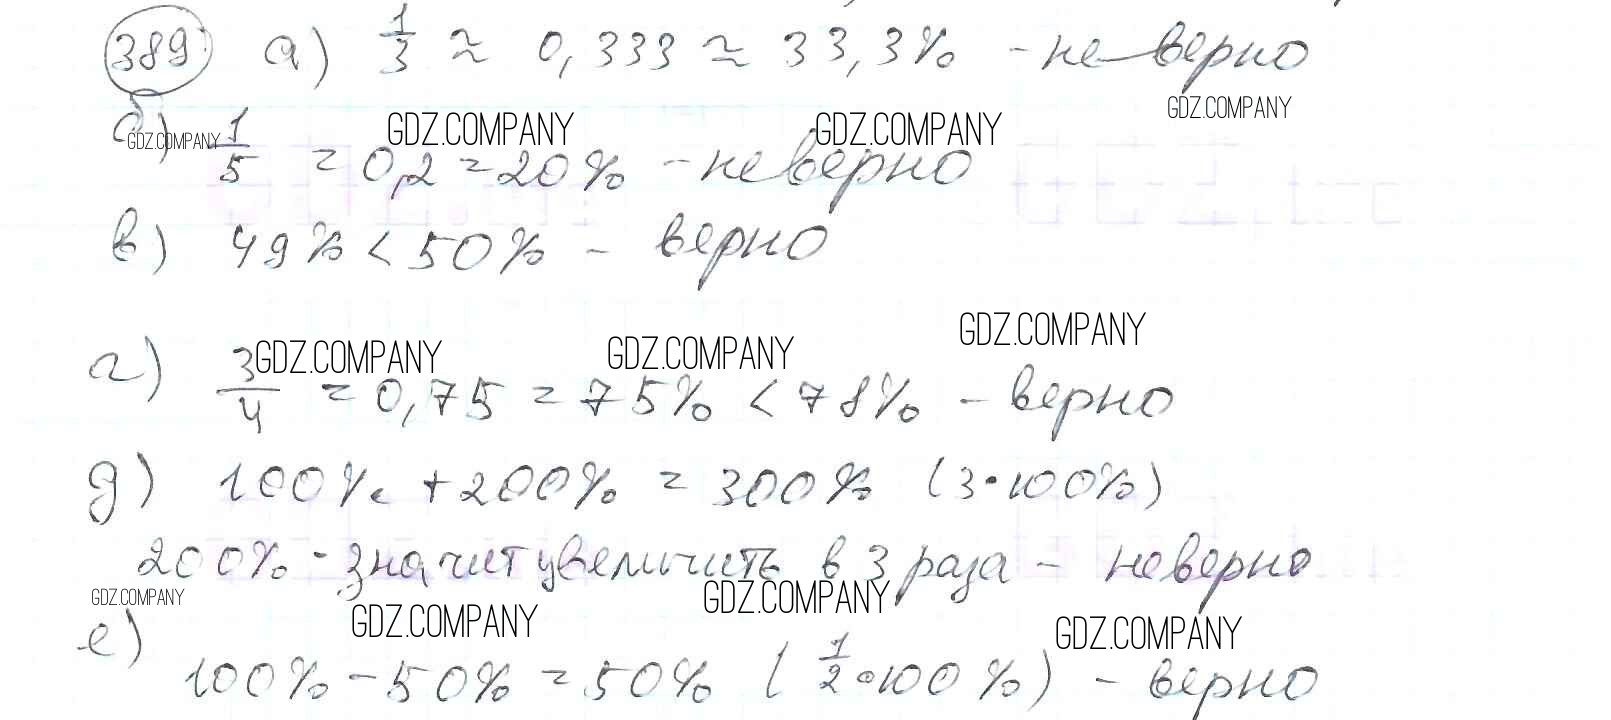 389 а) 1/3 ≈ 0,333 ≈ 33,3% - неверно
GDZ.COMPANY
б) 1/5 = 0,2 = 20% - неверно
GDZ.COMPANY GDZ.COMPANY GDZ.COMPANY
в) 49% < 50% - верно
GDZ.COMPANY GDZ.COMPANY GDZ.COMPANY
г) 3/4 = 0,75 = 75% < 78% - верно
д) 100% + 200% = 300% (3·100%)
200% - значит увеличить в 3 раза - неверно
GDZ.COMPANY GDZ.COMPANY GDZ.COMPANY GDZ.COMPANY
е) 100% - 50% = 50% (1/2·100%) - верно